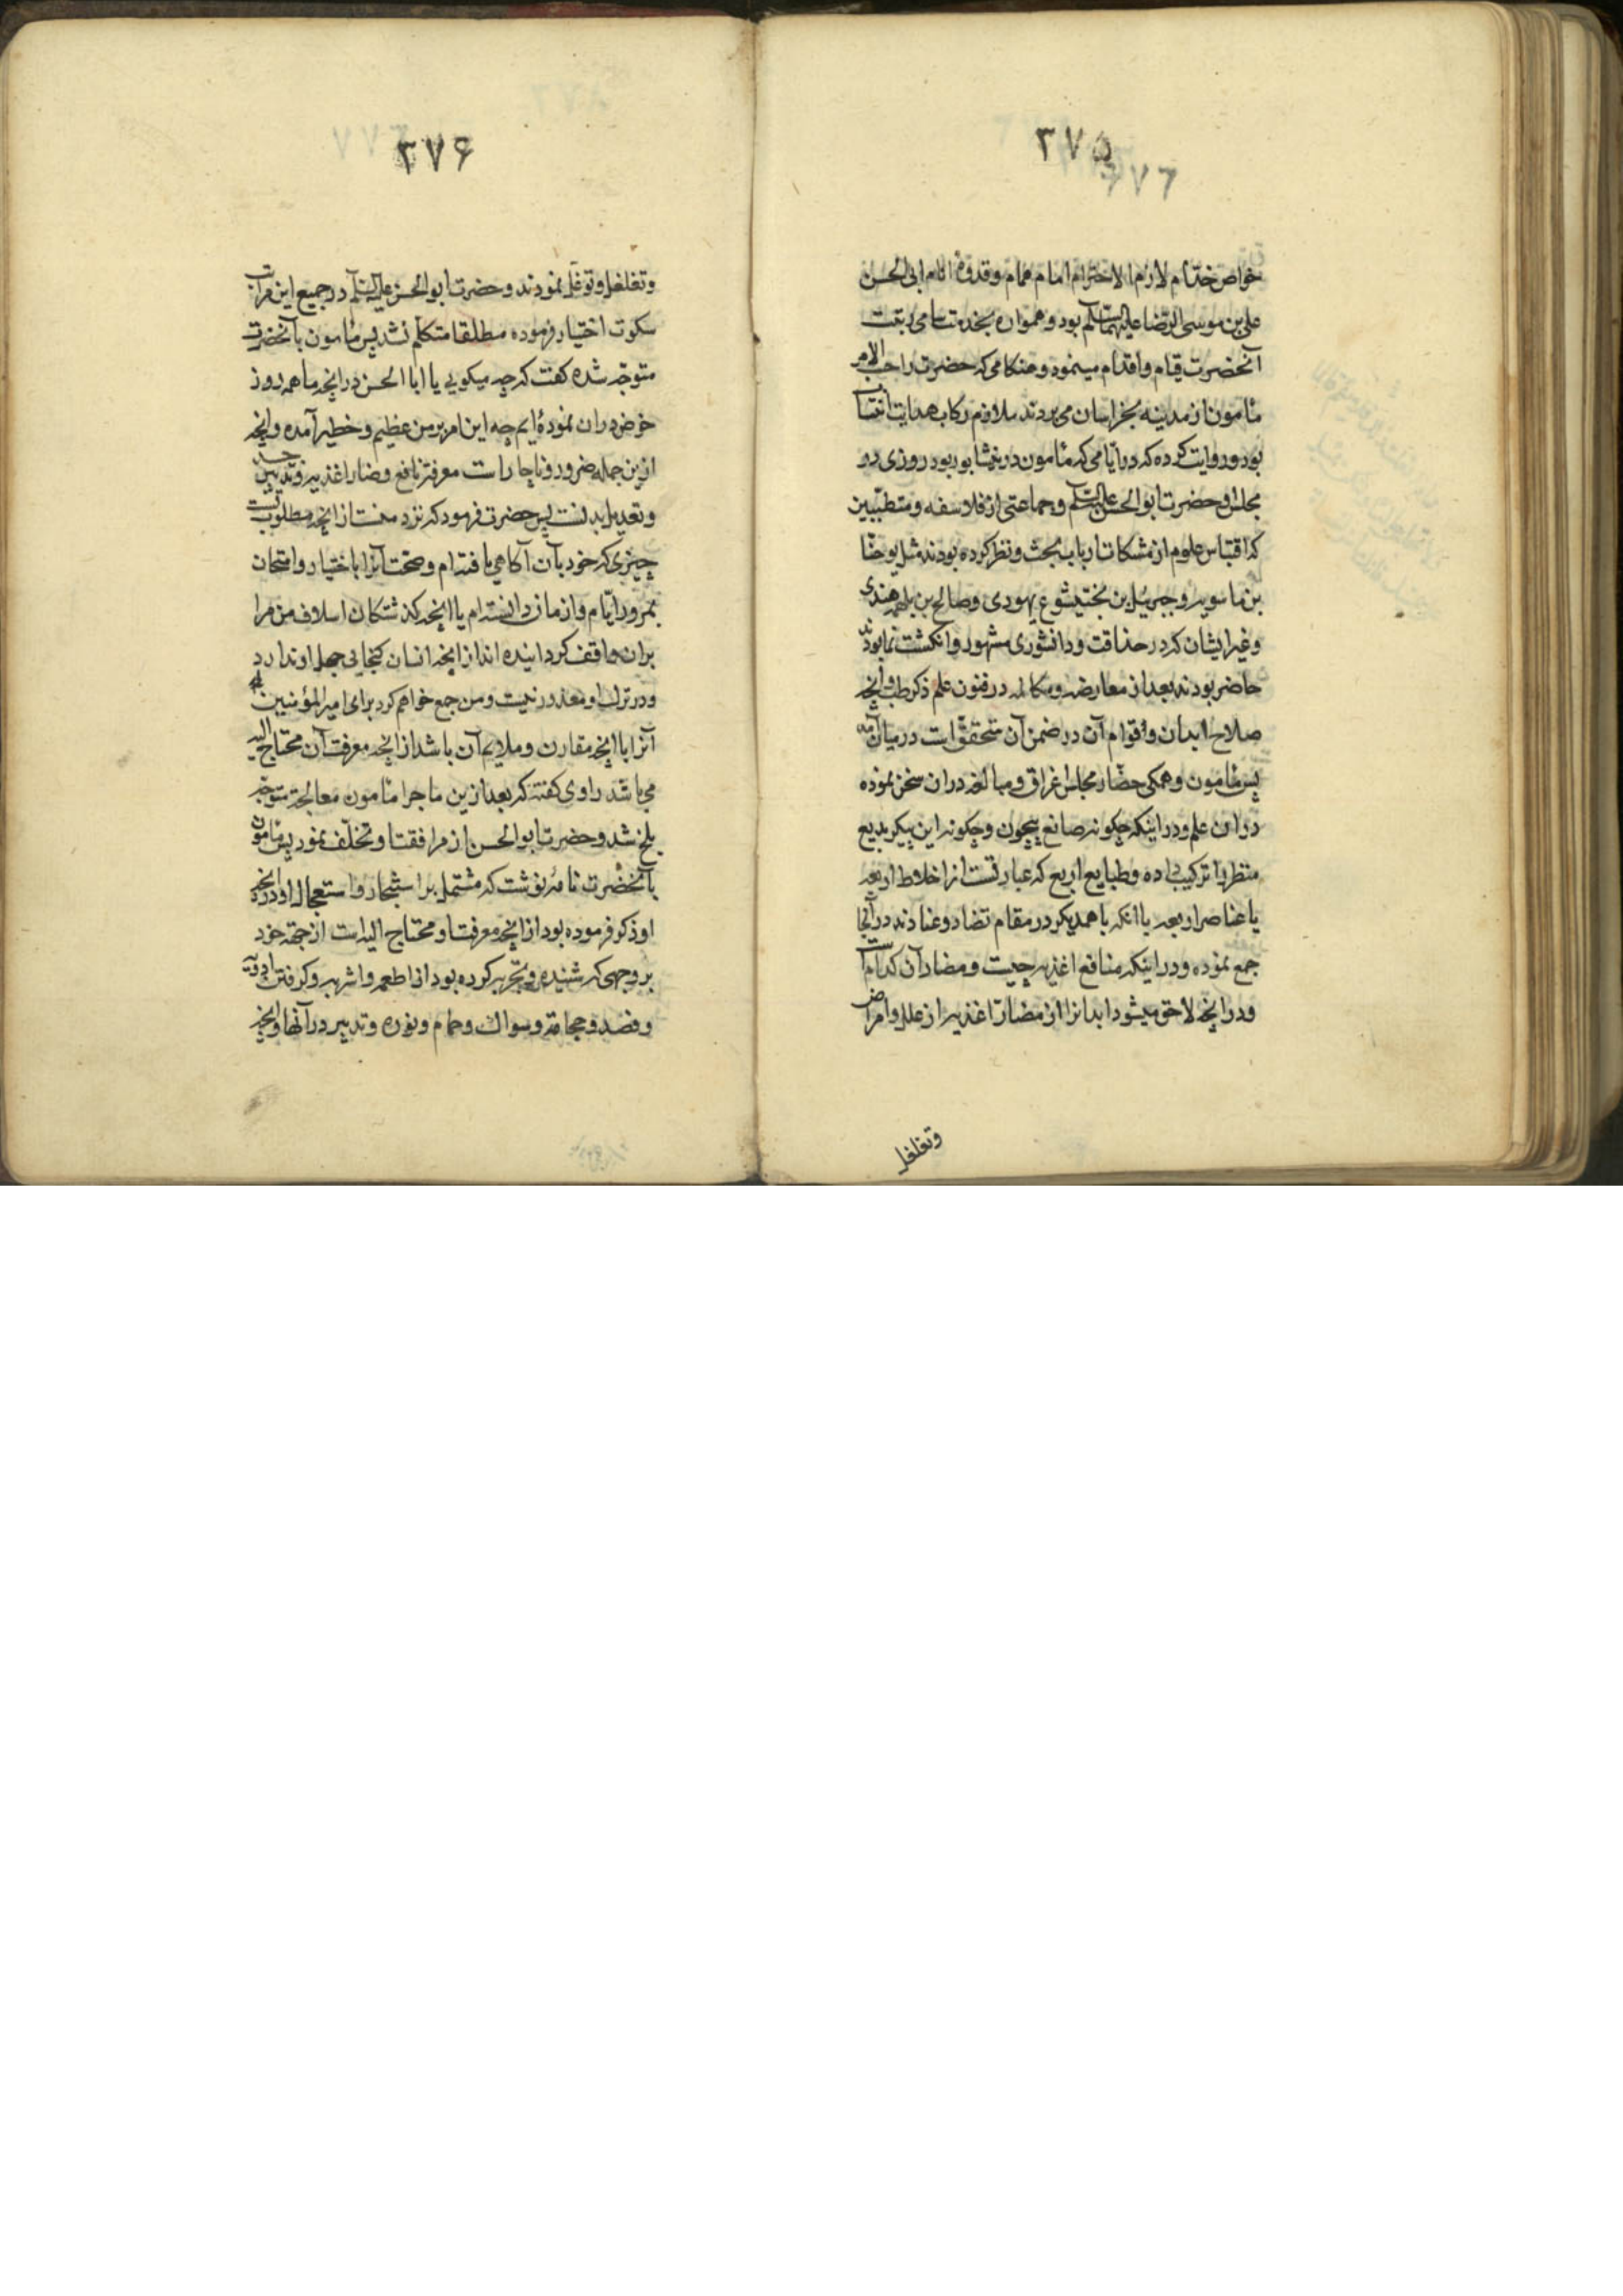 ۳۷۵
خواص خدام لازم الاحترام امام همام و قدوهٔ انام ابی الحسن
علی بن موسی الرضا علیهما السلم بود و همواره بخدمت سامی رتبت
آنحضرت قیام و اقدام مینمود و هنکامی که حضرت را حسب الامر
مأمون از مدینه بخراسان می بردند ملازم رکاب هدایت انتساب
بود روایت کرده که در ایامی که مأمون در نیشابور بود روزی در
مجلس او حضرت ابو الحسن علیه السلم و جماعتی از فلاسفه و متطببین
که اقتباس علوم از مشکات ارباب بحث و نظر کرده بودند مثل یوحنا
بن ماسویه و جبرئیل بن بختیشوع یهودی و صالح بن بلهمه هندی
و غیر ایشان که در حذاقت و دانشوری مشهور و انکشت نما بودند
حاضر بودند بعد از معارضه و مکالمه در فنون علم ذکر طب و آنچه
صلاح ابدان و قوام آن در ضمن آن متحقق است در میان آمد
پس مأمون و همکی حضار مجلس اغراق و مبالغه در ان سخن نموده
در ان علم و در اینکه چکونه صانع بیچون و چکونه این پیکر بدیع
منظر را ترکیب داده و طبایع اربع که عبارتست از اخلاط اربعه
یا عناصر اربعه با آنکه با همدیکر در مقام تضاد و عنادند در آنجا
جمع نموده و در اینکه منافع اغذیه چیست و مضار آن کدام است
و در آنچه لاحق میشود ابدانرا از مضارت اغذیه از علل و امراض
وتغلغل
۳۷۶
وتغلغل و توغل نمودند و حضرت ابو الحسن علیه السلم در جمیع این مراتب
سکوت اختیار فرموده مطلقا متکلم نشد پس مأمون بآنحضرت
متوجه شده کفت که چه میکویی یا ابا الحسن در آنچه ما همه روز
خوض در ان نموده‌ایم چه این امر بر من عظیم و خطیر آمده و آنچه
ازین جمله ضرور و ناچار است معرفة نافع و ضار اغذیه و تدبیر جسد
و تعدیل بدنست پس حضرت فرمود که نزد منست از آنچه مطلوبست
چیزی که خود بآن آکاهی یافته‌ام و صحت آنرا باختیار و امتحان
بمرور ایام و ازمان دانسته‌ام یا آنچه کذشتکان اسلاف من مرا
بران واقف کردانیده‌اند از آنچه انسان کنجایی جهل او ندارد
و در ترک او معذور نیست و من جمع خواهم کرد برای امیر المؤمنین
آنرا با آنچه مقارن و ملایم آن باشد از آنچه معرفت آن محتاج الیه
می باشد راوی کفته که بعد ازین ماجرا مأمون معالجة متوجه
بلخ شد و حضرت ابو الحسن از مرافقت او تخلف نمود پس مأمون
بآنحضرت نامهٔ نوشت که مشتمل بر استنجاز و استعجال او در آنچه
او ذکر فرموده بود از آنچه معرفت او محتاج الیه است از جهة خود
بر وجهی که شنیده و تجربه کرده بود از اطعمه و اشربه و کرفتن ادویه
و فصد و حجامة و سواک و حمام و نوره و تدبیر در آنها و آنچه